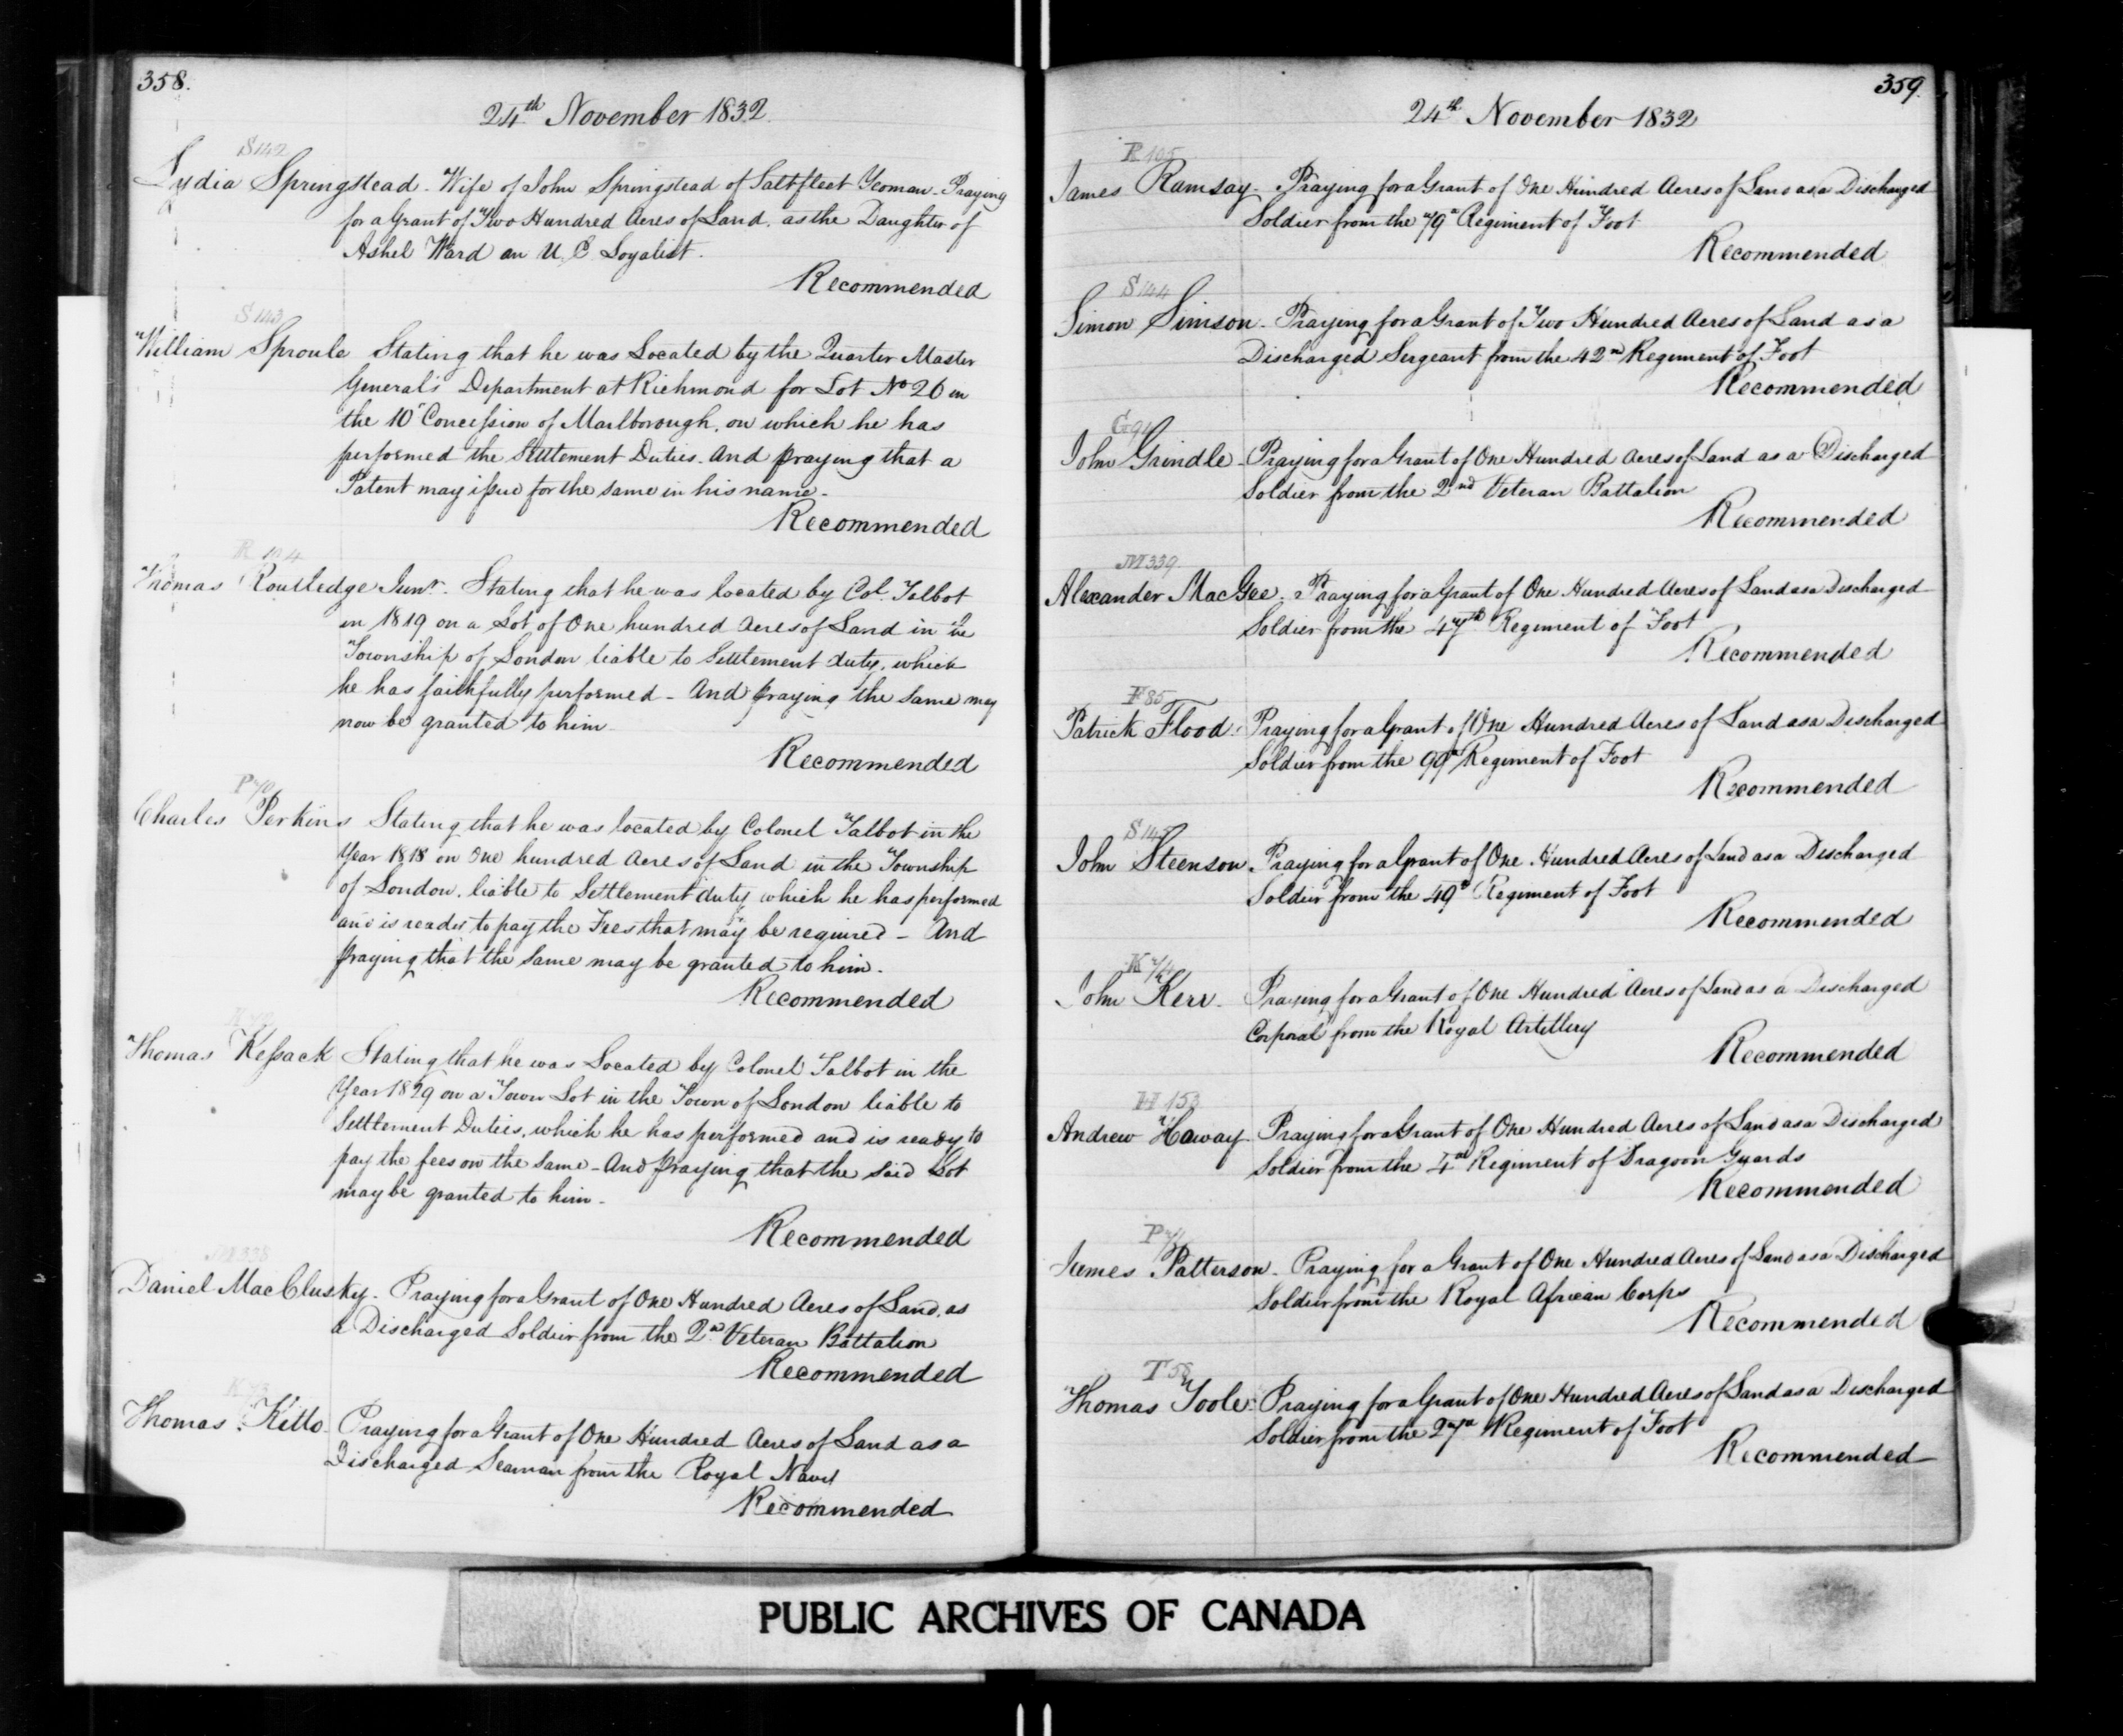 358.
24th November 1832
S 142
Lydia Springstead - Wife of John Springstead of Saltfleet Yeoman - Praying
for a Grant of Two Hundred Acres of Land, as the Daughter of
Ashel Ward an U. E Loyalist.
Recommended
S 143
William Sproule Stating that he was Located by the Quarter Master
General's Department at Richmond for Lot No 26 in
the 10th Concession of Marlborough, on which he has
performed the Settlement Duties. And praying that a
Patent may issue for the same in his name.
Recommended
R 104
Thomas Routledge Junr. Stating that he was located by Col. Talbot
in 1819 on a Lot of One hundred Acres of Land in the
Township of London liable to Settlement duty, which
he has faithfully performed - And praying the same may
now be granted to him.
Recommended
P 70
Charles Perkins Stating that he was located by Colonel Talbot in the
Year 1818 on One hundred Acres of Land in the Township
of London, liable to Settlement duty which he has performed
and is ready to pay the Fees that may be required - And
praying that the same may be granted to him.
Recommended
Thomas Kessack Stating that he was Located by Colonel Talbot in the
Year 1829 on a Town Lot in the Town of London liable to
Settlement Duties, which he has performed and is ready to
pay the fees on the same - And praying that the said Lot
may be granted to him -
Recommended
M 338
Daniel MacClusky - Praying for a Grant of One Hundred Acres of Land, as
a Discharged Soldier from the 2nd Veteran Battalion
Recommended
K 73
Thomas Kitto - Praying for a Grant of One Hundred Acres of Land as a
Discharged Seaman from the Royal Navy
Recommended
359.
24th November 1832
R 105
James Ramsay - Praying for a Grant of One Hundred Acres of Land as a Discharged
Soldier from the 79th Regiment of Foot
Recommended
S 144
Simon Simson - Praying for a Grant of Two Hundred Acres of Land as a
Discharged Sergeant from the 42nd Regiment of Foot
Recommended
G 94
John Grindle - Praying for a Grant of One Hundred Acres of Land as a Discharged
Soldier from the 2nd Veteran Battalion
Recommended
M 339
Alexander MacGee. Praying for a Grant of One Hundred Acres of Land as a Discharged
Soldier from the 47th Regiment of Foot
Recommended
F 85
Patrick Flood. Praying for a Grant of One Hundred Acres of Land as a Discharged
Soldier from the 99th Regiment of Foot
Recommended
S 145
John Steenson. Praying for a Grant of One Hundred Acres of Land as a Discharged
Soldier from the 49th Regiment of Foot
Recommended
K 74
John Kerr - Praying for a Grant of One Hundred Acres of Land as a Discharged
Corporal from the Royal Artillery
Recommended
H 153
Andrew Haway - Praying for a Grant of One Hundred Acres of Land as a Discharged
Soldier from the 4th Regiment of Dragoon Guards
Recommended
P 71
James Patterson - Praying for a Grant of One Hundred Acres of Land as a Discharged
Soldier from the Royal African Corps
Recommended
T 58
Thomas Toole - Praying for a Grant of One Hundred Acres of Land as a Discharged
Soldier from the 27th Regiment of Foot
Recommended
PUBLIC ARCHIVES OF CANADA